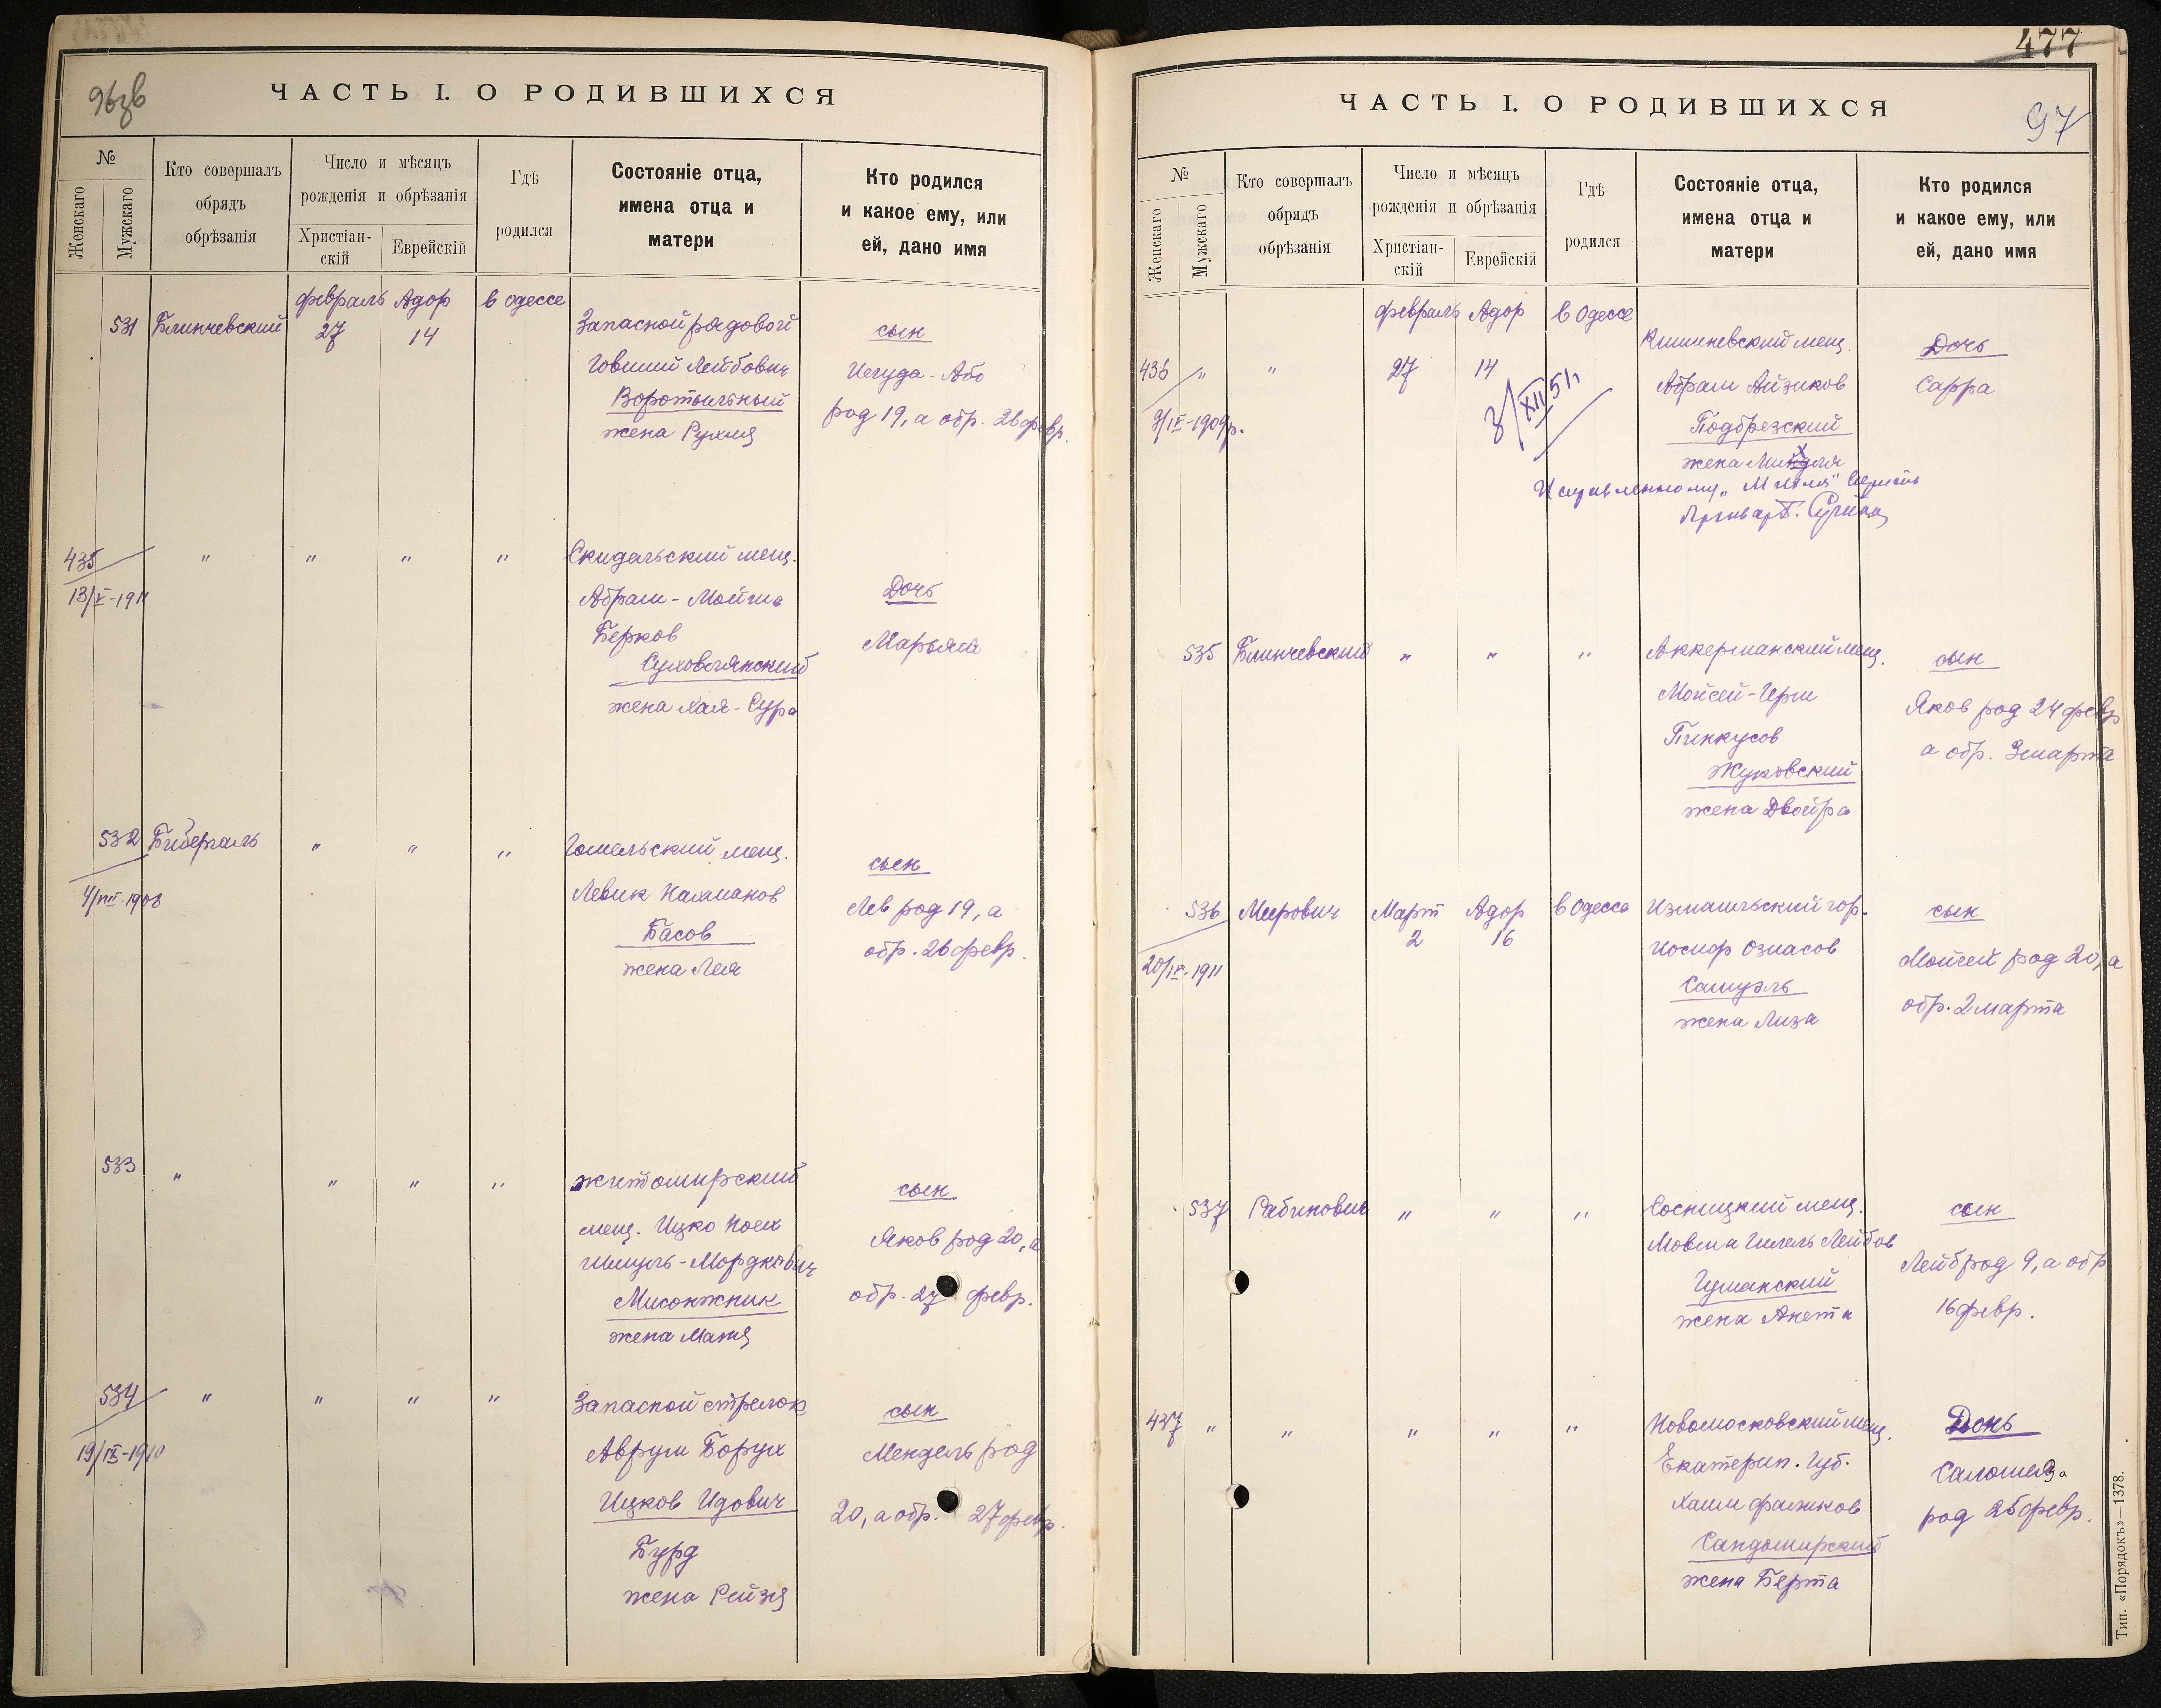 96зв
ЧАСТЬ I. О РОДИВШИХСЯ
№
Женскаго
Мужскаго
Кто совершалъ
обрядъ
обрѣзанія
Число и мѣсяцъ
рожденія и обрѣзанія
Христіан-
скій
Еврейскій
Гдѣ
родился
Состояніе отца,
имена отца и
матери
Кто родился
и какое ему, или
ей, дано имя
531 Блинчевский
февраль
27
Адор
14
в Одессе
Запасной рядовой
Говший Лейбович
Воротыльный
жена Рухля
сын
Иегуда-Або
род 19, а обр. 26 февр.
435
13/V-1911
" " " "
Скидельский мещ.
Абрам-Мойша
Берков
Суховолянский
жена Хая-Сура
Дочь
Марьям
532 Бибергаль
4/VIII-1908
" " "
Гомельский мещ.
Левик Нахманов
Басов
жена Лея
сын
Лев род 19, а
обр. 26 февр.
533 " " " "
житомирский
мещ. Ицко Ноех
Шмуль-Мордкович
Мисонжник
жена Маня
сын
Яков род 20, а
обр. 27 февр.
534
19/IX-1910
" " " "
Запасной стрелок
Аврум Борух
Ицков Идович
Бурд
жена Рейзя
сын
Мендель род
20, а обр. 27 февр.
477
97
ЧАСТЬ I. О РОДИВШИХСЯ
№
Женскаго
Мужскаго
Кто совершалъ
обрядъ
обрѣзанія
Число и мѣсяцъ
рожденія и обрѣзанія
Христіан-
скій
Еврейскій
Гдѣ
родился
Состояніе отца,
имена отца и
матери
Кто родился
и какое ему, или
ей, дано имя
436 " "
3/IX-1909р.
февраль
27
Адор
14
в Одессе
8/XII 51г
Кишиневский мещ.
Абрам Айзиков
Подбрезский
жена
Исправленному
Дочь
Сарра
535 Блинчевский " " "
Аккерманский мещ.
Мойсей-Герш
Пинкусов
Жуковский
жена Двойра
сын
Яков род 24 февр
а обр. 3 марта
536 Меерович
20/IX-1911
Март
2
Адор
16
в Одессе
Измаильский гор.
Иосиф Озиасов
Самуэль
жена Лиза
сын
Мойсей род 20, а
обр. 2 марта
537 Рабинович " " "
Сосницкий мещ.
Мовша Гилель Лейбов
Гуманский
жена Анета
сын
Лейб род 9, а обр
16 февр.
437 " " " " "
Новомосковский мещ.
Екатерин. Губ.
Хаим
Сандомирский
жена Берта
Дочь
род 25 февр.
Тип. «Порядокъ»—1378.